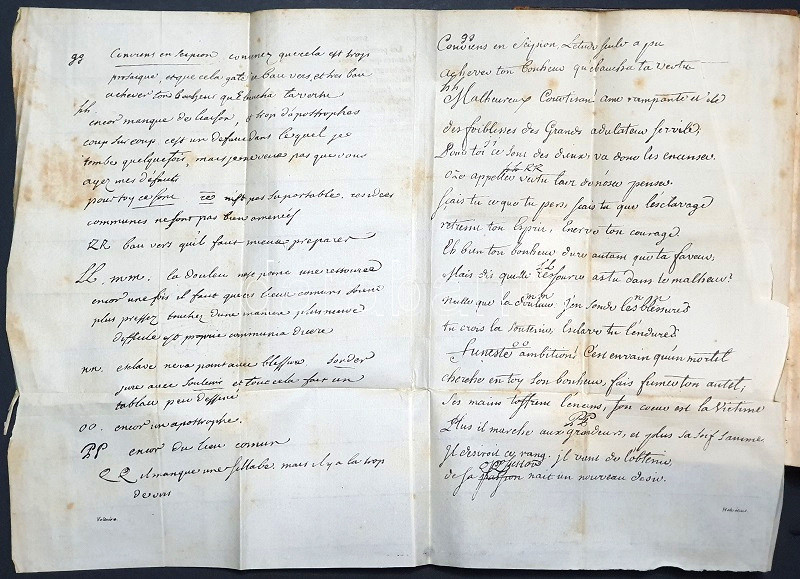 gg Conviens en Scipion convenez que cela est trop
prosaique, et que cela gate un bau vers, et tres bau
achever ton bonheur qu'Ebaucha ta vertu
hh encor manque de liaison, et trop d'apostrophes
coup sur coup c'est un defaut dans lequel je
tombe quelquefois, mais je ne veux pas que vous
ayez mes défauts
pour toy ce sont n'est pas suportable. ces idées
communes ne sont pas bien amenées
RR bau vers qu'il faut mieux préparer
LL. mm. la douleur une ressource
encor une fois il faut que ces lieux communs soient
plus pressez touchez d'une maniere plus neuve
difficile est proprie communia dicere
nn. esclave ne va point avec blessure sonder
jure avec soutenir et tout cela fait un
tablau peu dessiné
oo. encor un apostrophe.
PP encor du lieu comun
QQ il manque une sillabe. mais il y a la trop
de vers
Voltaire.
gg
Conviens en Scipion, L'etude seule a pu
achever ton bonheur qu'ébaucha ta vertu
hh
Malheureux Courtisan! ame rampante et vile
des foiblesses des Grands adulateur servile,
Pour toi ce sont des dieux va donc les encenser
appeller vertu l'art de n'oser penser.
sçais tu ce que tu pers, sçais tu que l'esclavage
retressit ton Esprit, Enerve ton courage
Eh bien ton bonheur dure autant que ta faveur,
LL
Mais dis quelle ressource as tu dans le malheur?
mm nn
nulle que la douleur. J'en sonde les blessures
tu crois la soutenir, esclave tu l'endures
oo
funeste ambition! C'est en vain qu'un mortel
cherche en toy son bonheur, fais fumer ton autel;
Ses mains t'offrent l'encens, son coeur est la victime
PP
Plus il marche aux grandeurs, et plus sa soif s'anime
Il desiroit ce rang. il vient de l'obtenir
de sa passion nait un nouveau desir.
Helvétius.